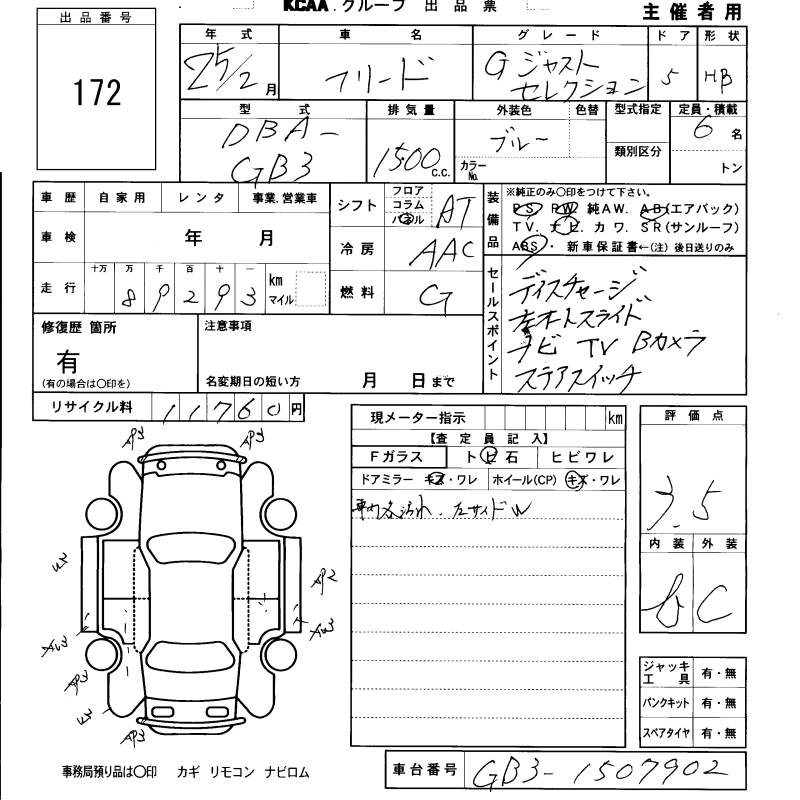 KCAA.グループ 出品票
主催者用
出品番号
172
年式 車名 グレード ドア 形状
25/2月 フリード Gジャスト セレクション 5 HB
型式 排気量 外装色 色替 型式指定 定員・積載
DBA-GB3 1500c.c. ブルー カラーNo. 類別区分 6名 トン
車歴 自家用 レンタ 事業.営業車
車検 年 月
走行 十万 万 千 百 十 一 km マイル
89293
シフト フロア コラム パネル AT
冷房 AAC
燃料 G
装備品 ※純正のみ〇印をつけて下さい。
PS PW 純AW. AB(エアバック)
TV. ナビ カワ. SR(サンルーフ)
ABS・ 新車保証書←(注)後日送りのみ
セールスポイント
ディスチャージ
左オートスライド
ナビ TV Bカメラ
ステアスイッチ
修復歴 箇所
有
(有の場合は〇印を)
注意事項
名変期日の短い方 月 日まで
リサイクル料 11760円
現メーター指示 km
【査定員記入】
Fガラス トビ石 ヒビワレ
ドアミラー キズ・ワレ ホイール(CP) キズ・ワレ
車内各汚れ.左サイドW
評価点
3.5
内装 外装
C
AP3 AP3
U3
AP2
AP3
AP3
ジャッキ 工具 有・無
パンクキット 有・無
スペアタイヤ 有・無
事務局預り品は〇印 カギ リモコン ナビロム
車台番号 GB3-1507902